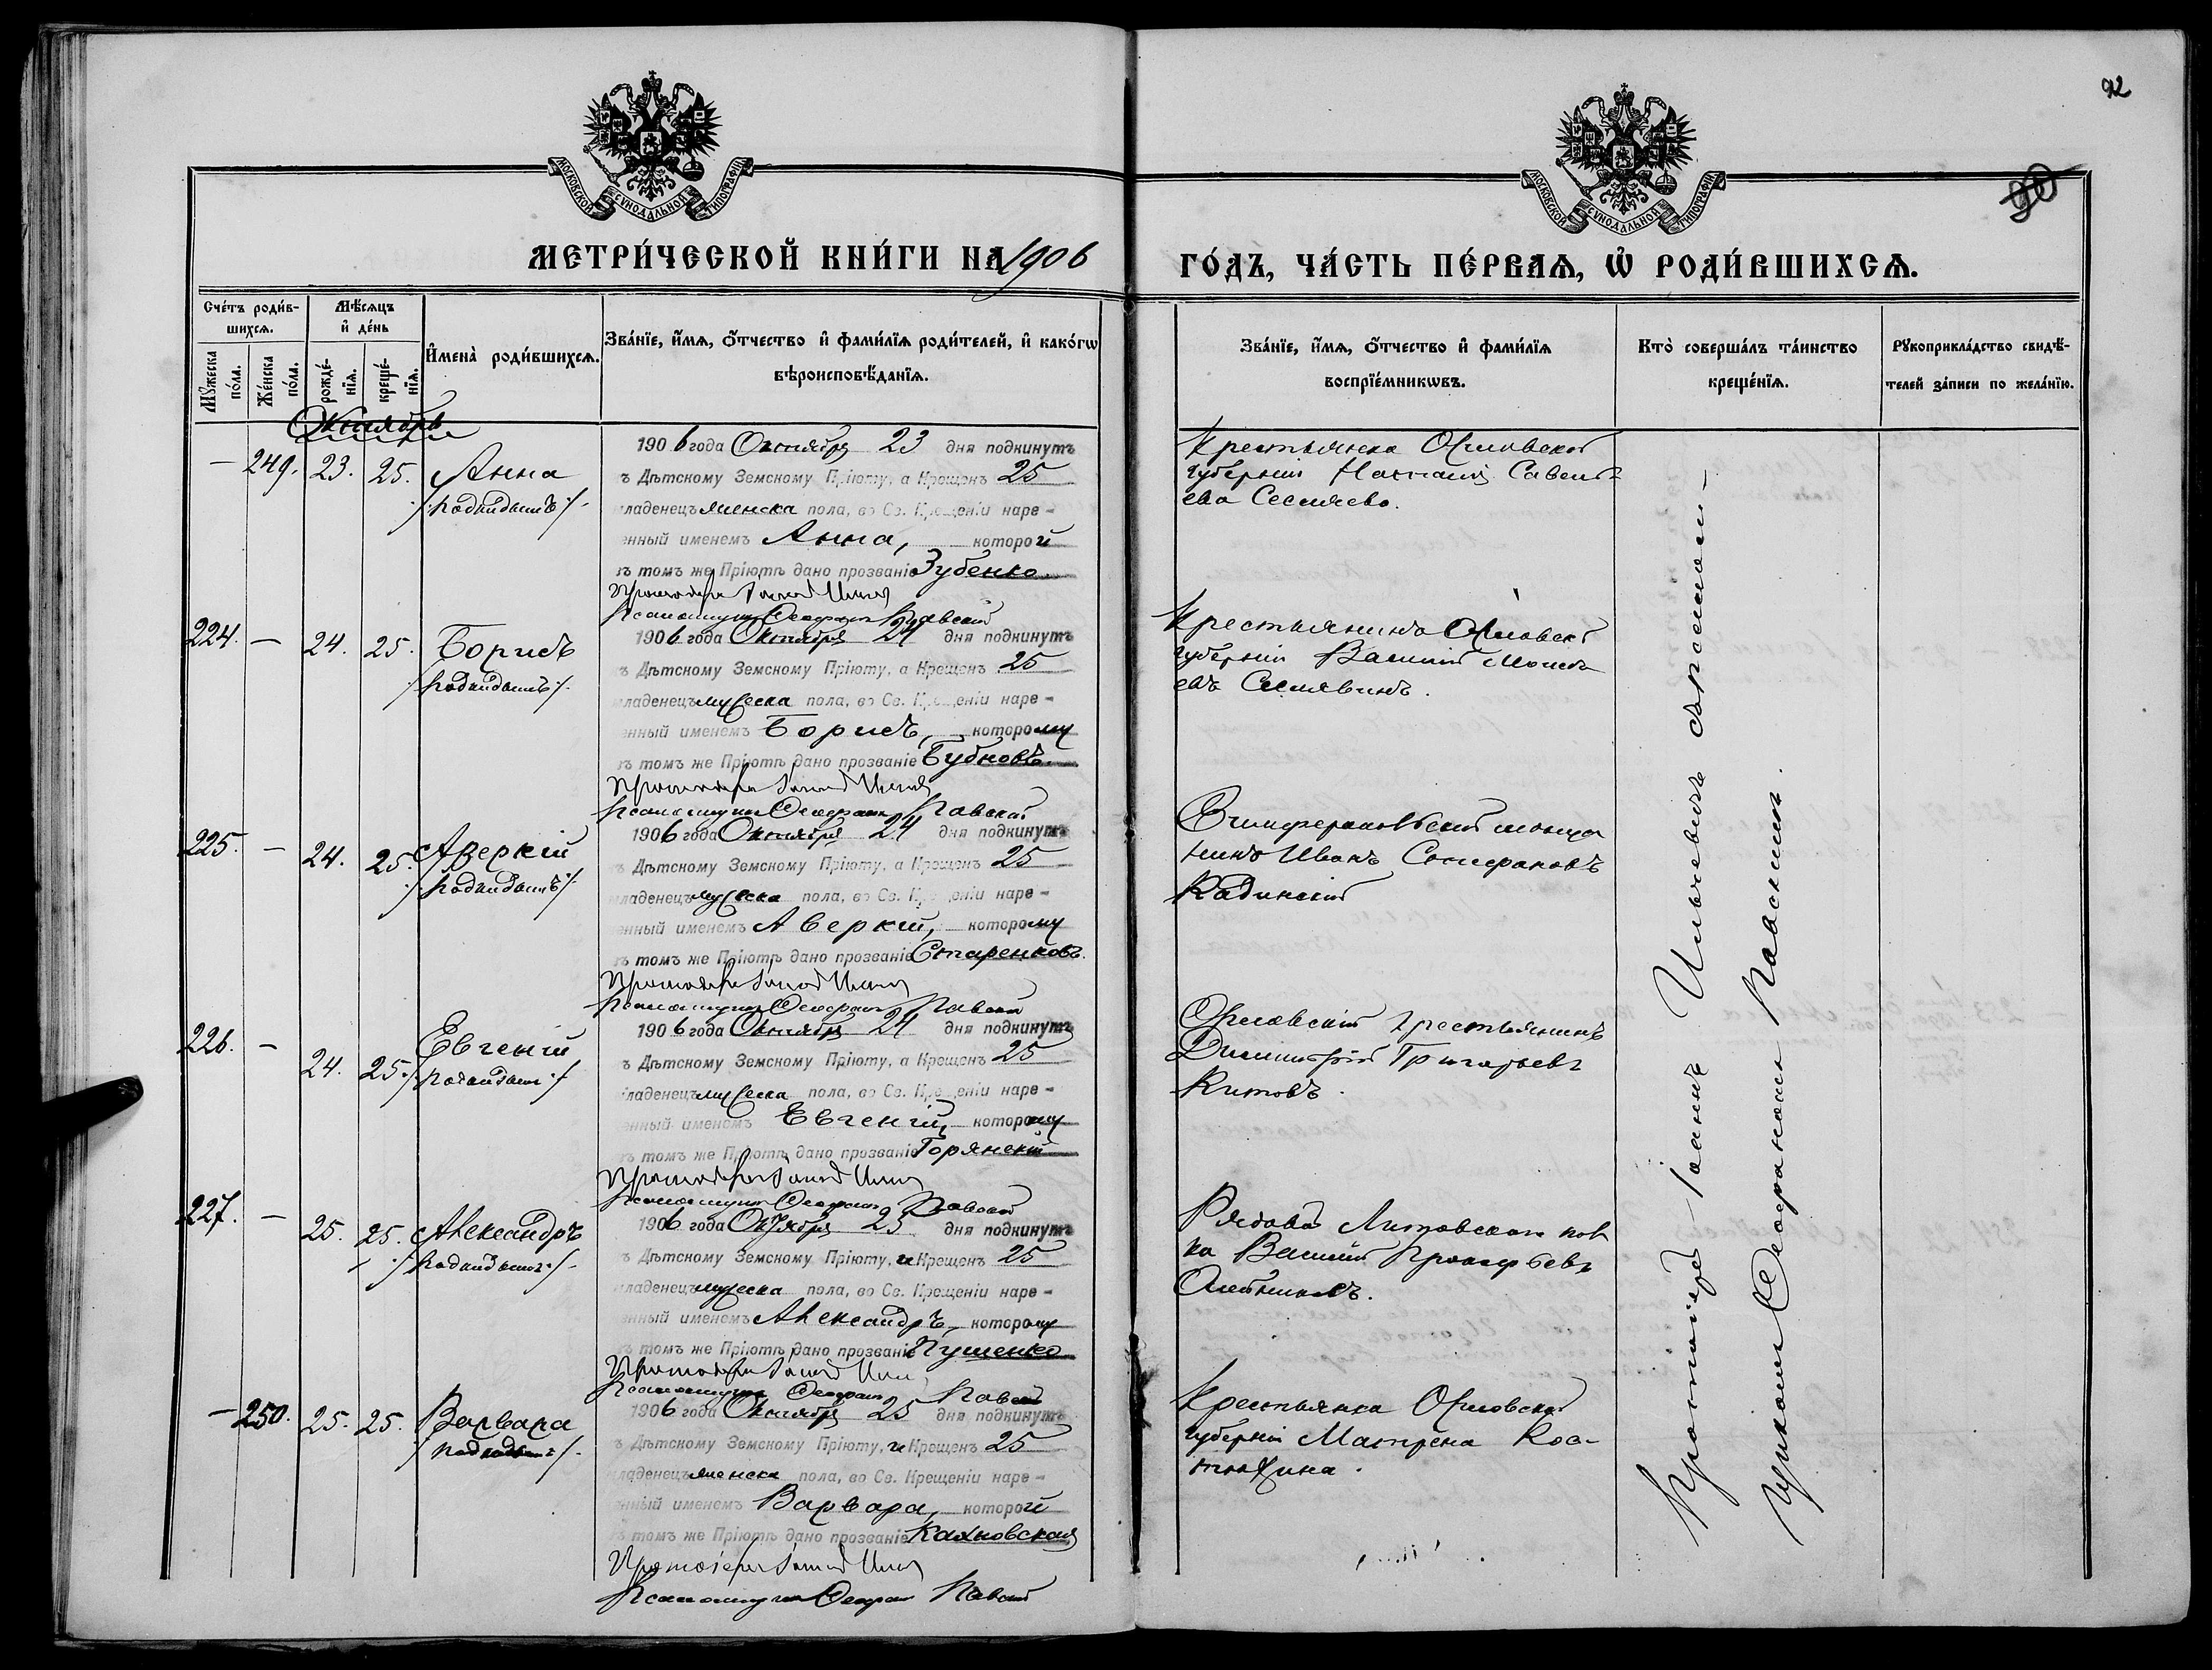 92
90
МОСКОВСКОЙ СУНОДАЛЬНОЙ ТИПОГРАФІИ
МОСКОВСКОЙ СУНОДАЛЬНОЙ ТИПОГРАФІИ
МЕТРИ́ЧЕСКОЙ КНИ́ГИ НА 1906
ГО́ДЪ, ЧА́СТЬ ПЕ́РВАѦ, Ѡ҆ РОДИ́ВШИХСѦ.
Сче́тъ роди́вшихсѧ.
Мꙋ́жеска по́ла.
Же́нска по́ла.
Мѣ́сѧцъ и҆ де́нь
рожде́нїѧ.
креще́нїѧ.
И҆мена̀ роди́вшихсѧ.
Зва́нїе, и҆́мѧ, ѻ҆́тчество и҆ фами́лїѧ роди́телей, и҆ како́гѡ
вѣроисповѣ́данїѧ.
Зва́нїе, и҆́мѧ, ѻ҆́тчество и҆ фами́лїѧ
воспрїе́мникѡвъ.
Кто̀ соверша́лъ та́инство
креще́нїѧ.
Рꙋкоприкла́дство свидѣ́-
телей за́писи по жела́нїю.
Октябрь
— 249. 23. 25. Анна
/:подкидышъ:/
1906 года Октября 23 дня подкинутъ
ъ Дѣтскому Земскому Пріюту, а Крещенъ 25
младенецъ женска пола, во Св. Крещеніи наре-
енный именемъ Анна, которой
въ томъ же Пріютѣ дано прозваніе Зубенко.
Протоіерей Іоаннъ
Псаломщикъ Феофанъ Павскій
Крестьянка Орловской
губерніи Наталія Савель-
ева
224. — 24. 25. Борисъ
/:подкидышъ:/
1906 года Октября 24 дня подкинутъ
ъ Дѣтскому Земскому Пріюту, а Крещенъ 25
младенецъ мужеска пола, во Св. Крещеніи наре-
енный именемъ Борисъ, которому
въ томъ же Пріютѣ дано прозваніе Бубновъ.
Протоіерей Іоаннъ
Псаломщикъ Феофанъ Павскій
Крестьянинъ Орловск
губерніи Василій
225. — 24. 25. Аверкій
/:подкидышъ:/
1906 года Октября 24 дня подкинутъ
ъ Дѣтскому Земскому Пріюту, а Крещенъ 25
младенецъ мужеска пола, во Св. Крещеніи наре-
енный именемъ Аверкій, которому
въ томъ же Пріютѣ дано прозваніе Старенковъ.
Протоіерей Іоаннъ
Псаломщикъ Феофанъ Павскій
Симферопольскій мѣща
нинъ Иванъ
Кадинскій
226. — 24. 25. Евгеній
/:подкидышъ:/
1906 года Октября 24 дня подкинутъ
ъ Дѣтскому Земскому Пріюту, а Крещенъ 25
младенецъ мужеска пола, во Св. Крещеніи наре-
енный именемъ Евгеній, которому
въ томъ же Пріютѣ дано прозваніе Горянскій
Протоіерей Іоаннъ
Псаломщикъ Феофанъ Павскій
Орловскій крестьянинъ
Димитрій Григорьевъ
Китовъ.
227. — 25. 25. Александръ
/:подкидышъ:/
1906 года Октября 25 дня подкинутъ
ъ Дѣтскому Земскому Пріюту, и Крещенъ 25
младенецъ мужеска пола, во Св. Крещеніи наре-
енный именемъ Александръ, которому
въ томъ же Пріютѣ дано прозваніе Пушенко
Протоіерей Іоаннъ
Псаломщикъ Феофанъ Павскій
Рядовой Литовскаго пол
ка Василій
— 250. 25. 25. Варвара
/:подкидышъ:/
1906 года Октября 25 дня подкинутъ
ъ Дѣтскому Земскому Пріюту, и Крещенъ 25
младенецъ женска пола, во Св. Крещеніи наре-
енный именемъ Варвара, которой
въ томъ же Пріютѣ дано прозваніе Каяновская
Протоіерей Іоаннъ
Псаломщикъ Феофанъ Павскій
Крестьянка Орловской
губерніи Матрена Кос-
тюхина.
Протоіерей Іоаннъ Ильичевичъ съ псаломщ-
щикомъ Феофаномъ Павскимъ.